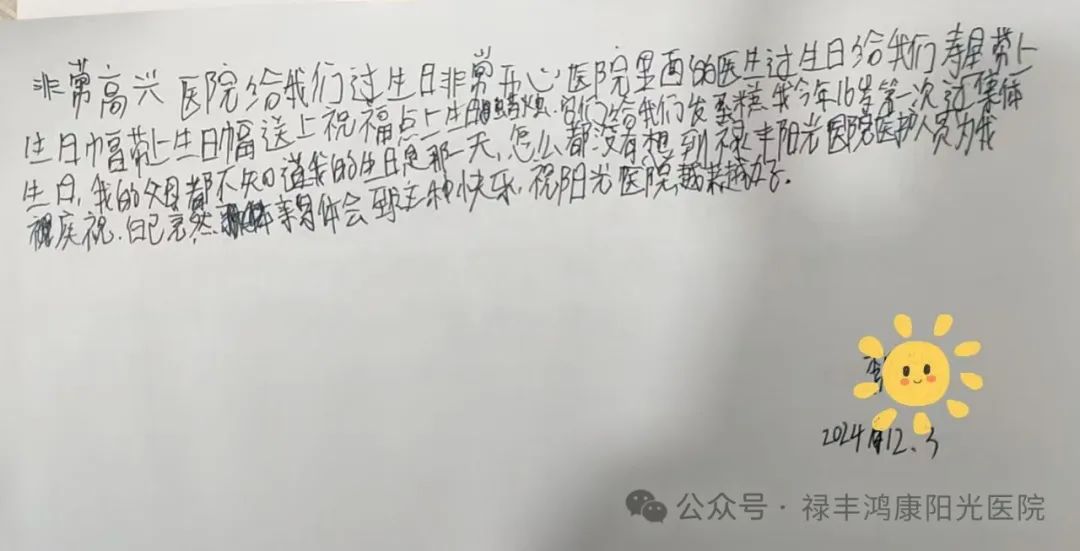 非常高兴医院给我们过生日非常开心医院里面的医生过生日给我们寿星带上
生日帽带上生日帽送上祝福点上生日蜡烛.它们给我们发蛋糕.我今年16岁第一次过集体
生日,我的父母都不知道我的生日是那一天,怎么都没有想到禄丰阳光医院医护人员为我
庆祝.自已竟然亲身体会到这种快乐,祝阳光医院越来越好.
2024年12.3
公众号·禄丰鸿康阳光医院